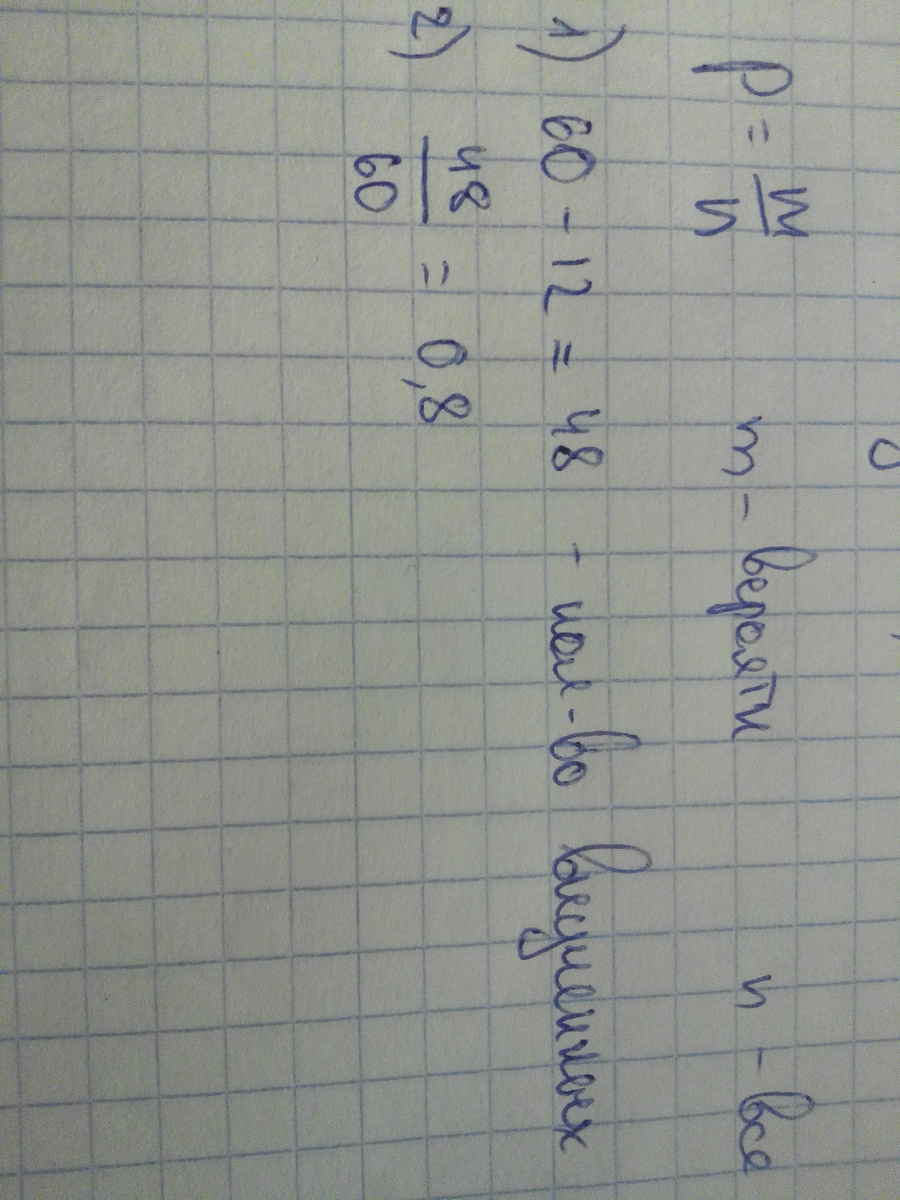 P = m/n m - вероятн n - все
1) 60 - 12 = 48 - кол-во выученных
2) 48/60 = 0,8